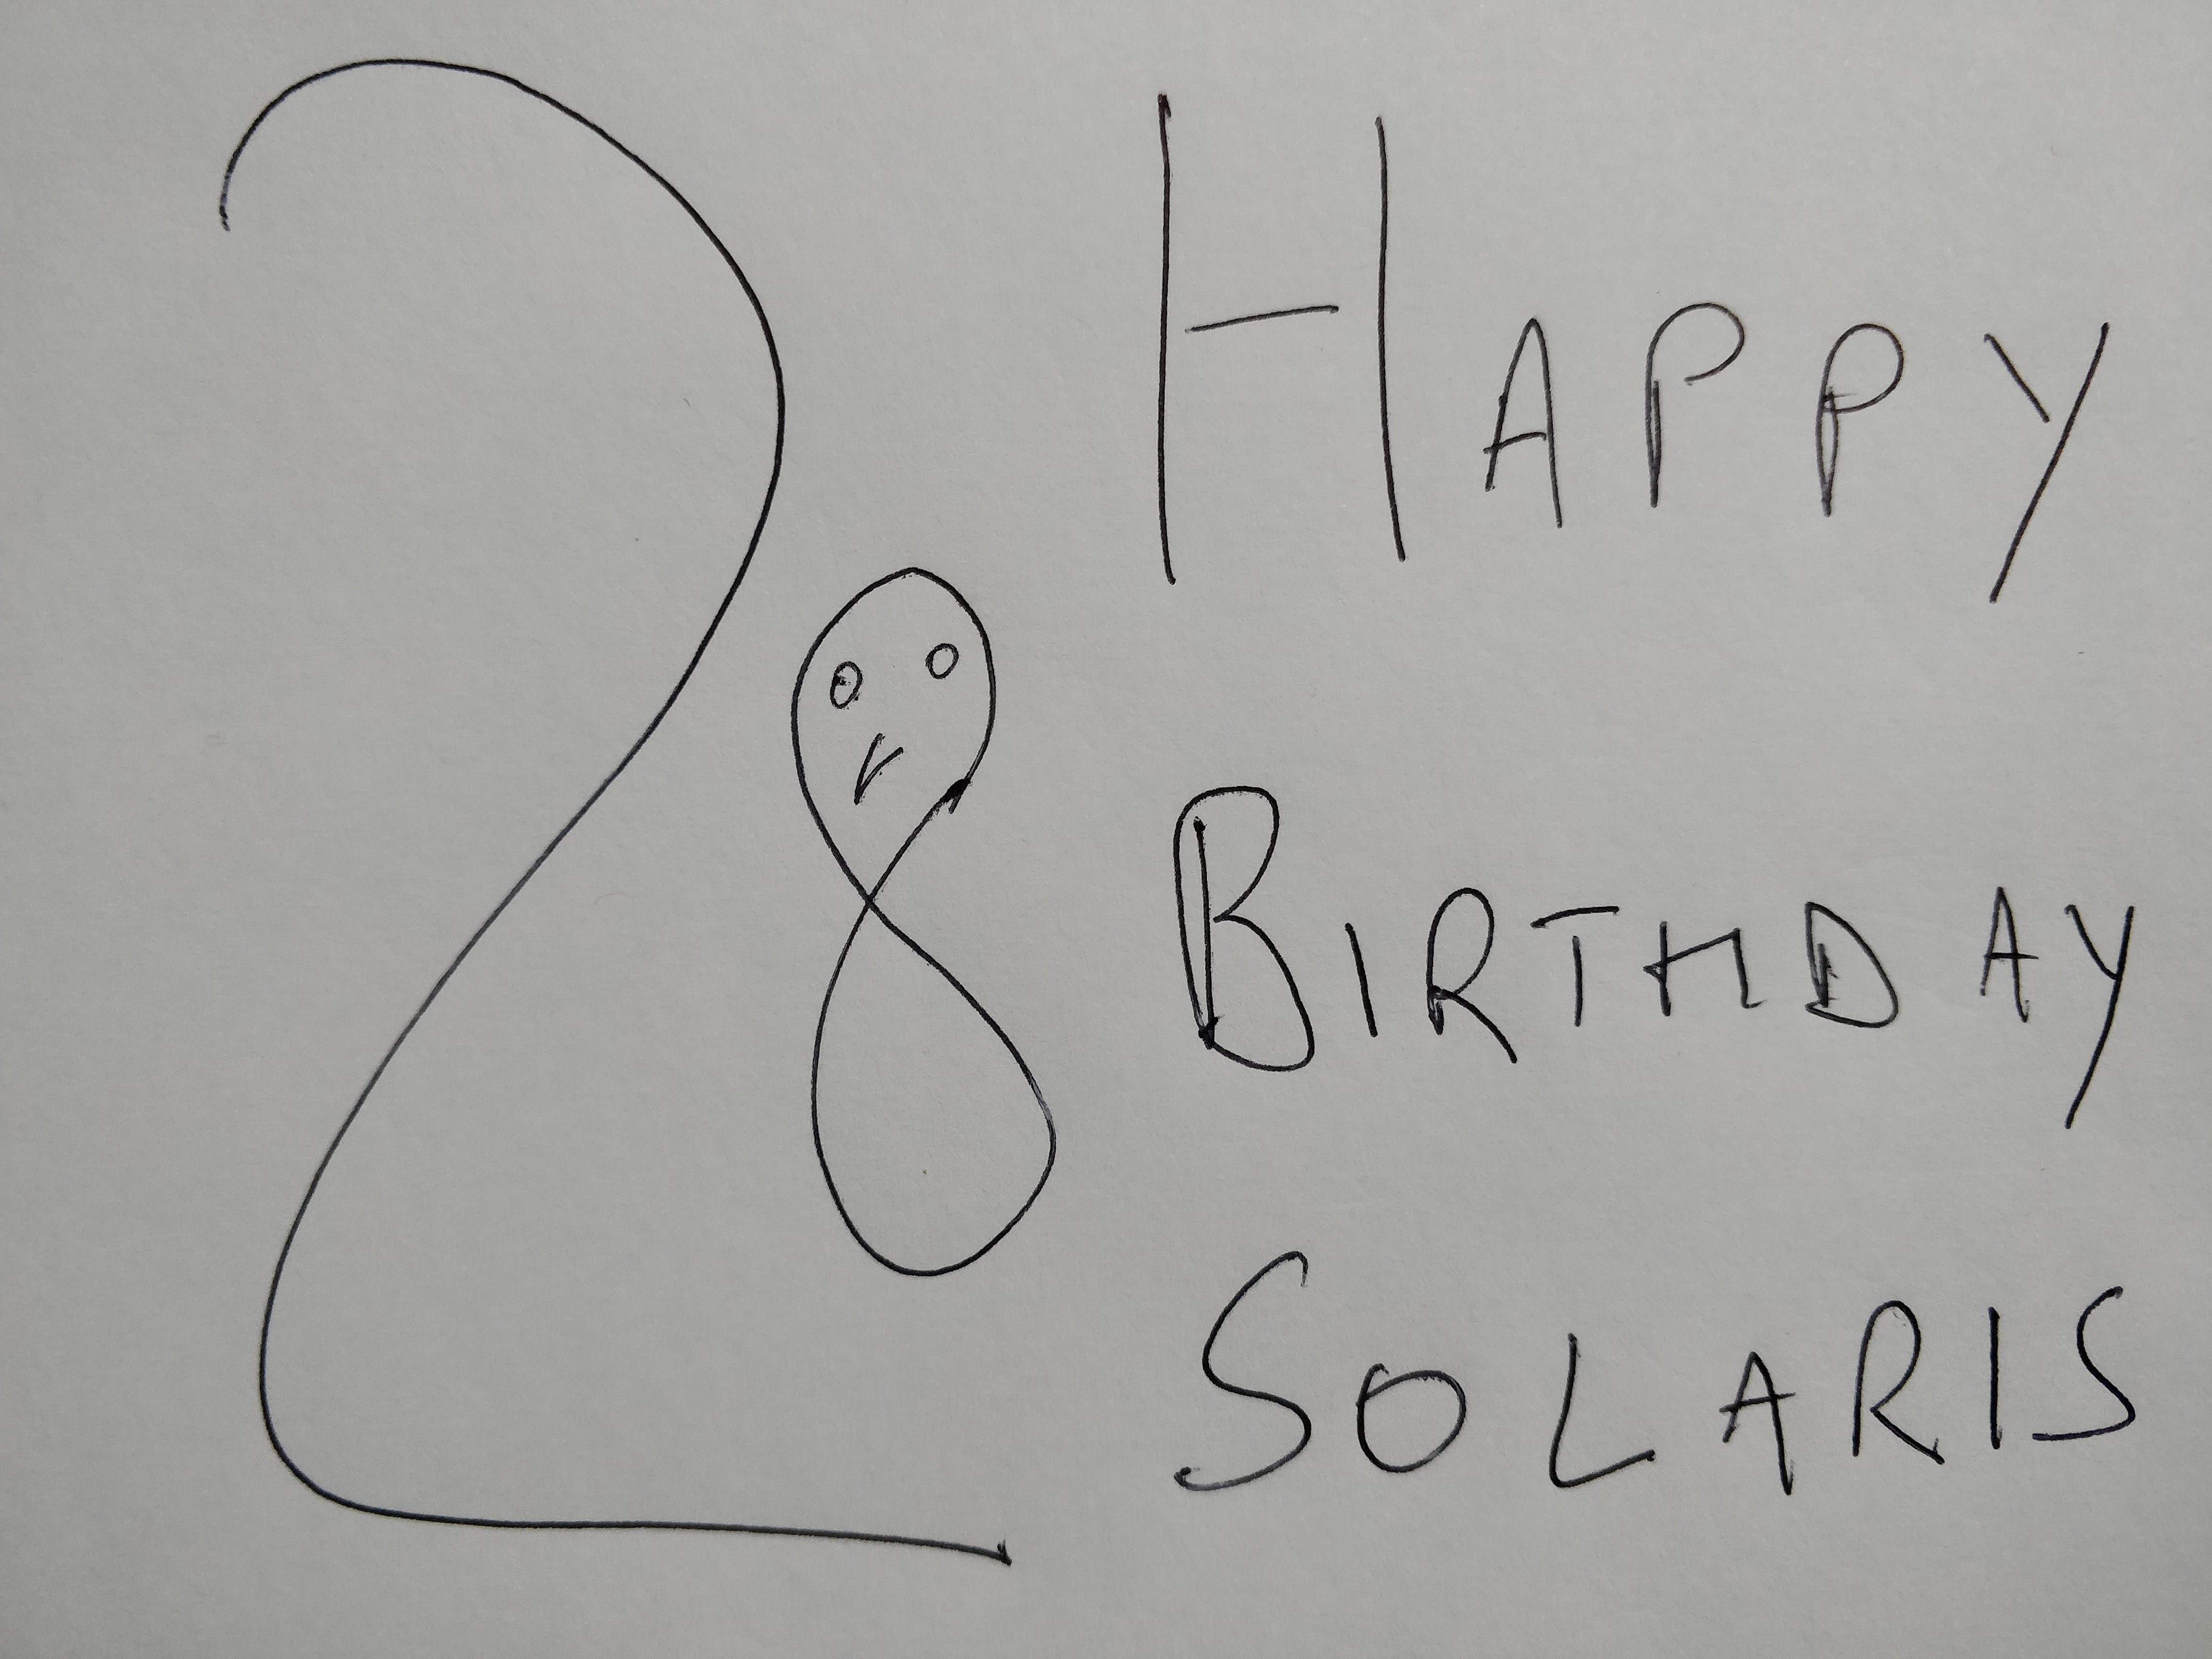 28
HAPPY
BIRTHDAY
SOLARIS